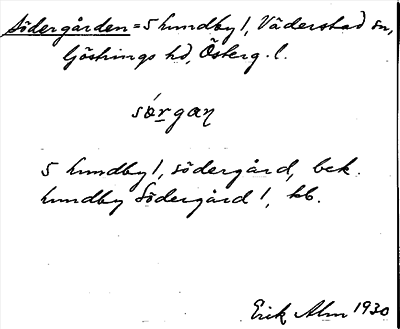 Södergården = S Lundby 1, Väderstad sn,
Göstrings hd, Österg. l.
sørgan
S Lundby 1, södergård, bek.
Lundby Södergård 1, kb.
Erik Alm 1930